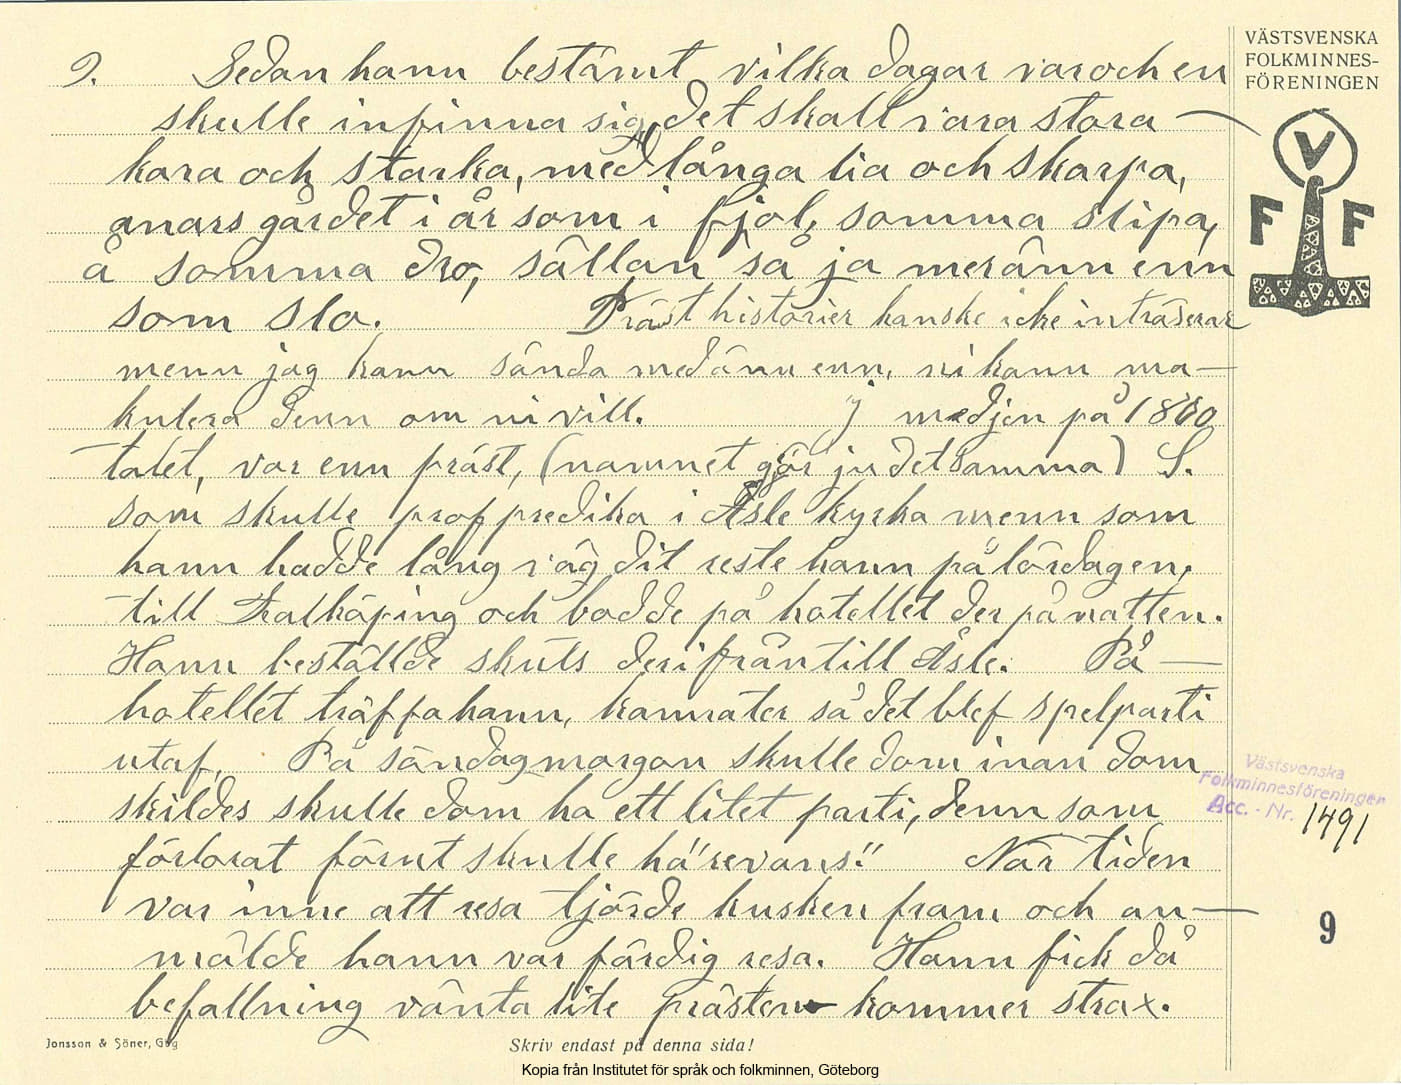 VÄSTSVENSKA
FOLKMINNES-
FÖRENINGEN
V
F F
9. Sedan hann bestämt vilka dagar var och en
skulle infinna sig, det skall vara stora
kara och starka, med långa lia och skarpa,
anars gårdet i år som i fjol, somma slipa,
å somma dro, sällan så ja mer änn enn
som slo. Präst historier kanske icke inträserar
menn jag kann sända med änn enn, ni kann ma-
kulera denn om ni vill. I medjen på 1860
talet, var enn präst, (namnet gör ju detsamma) S.
som skulle prof predika i Åsle kyrka menn som
hann hadde lång väg dit reste hann på lördagen,
till Falköping och bodde på hotellet der på natten.
Hann beställde skuts derifrån till Åsle. På
hotellet träffa hann, kamrater så det blef spelparti
utaf. På söndagmorgon skulle dom inan dom
skildes skulle dom ha ett litet parti, denn som
förlorat förut skulle hä "revans". När tiden
var inne att resa tjörde kusken fram och an-
mälde hann var färdig resa. Hann fick då
befallning vänta lite prästen kommer strax.
Västsvenska
Folkminnesföreningen
Acc. - Nr. 1491
9
Jonsson & Söner, Gbg
Skriv endast på denna sida!
Kopia från Institutet för språk och folkminnen, Göteborg